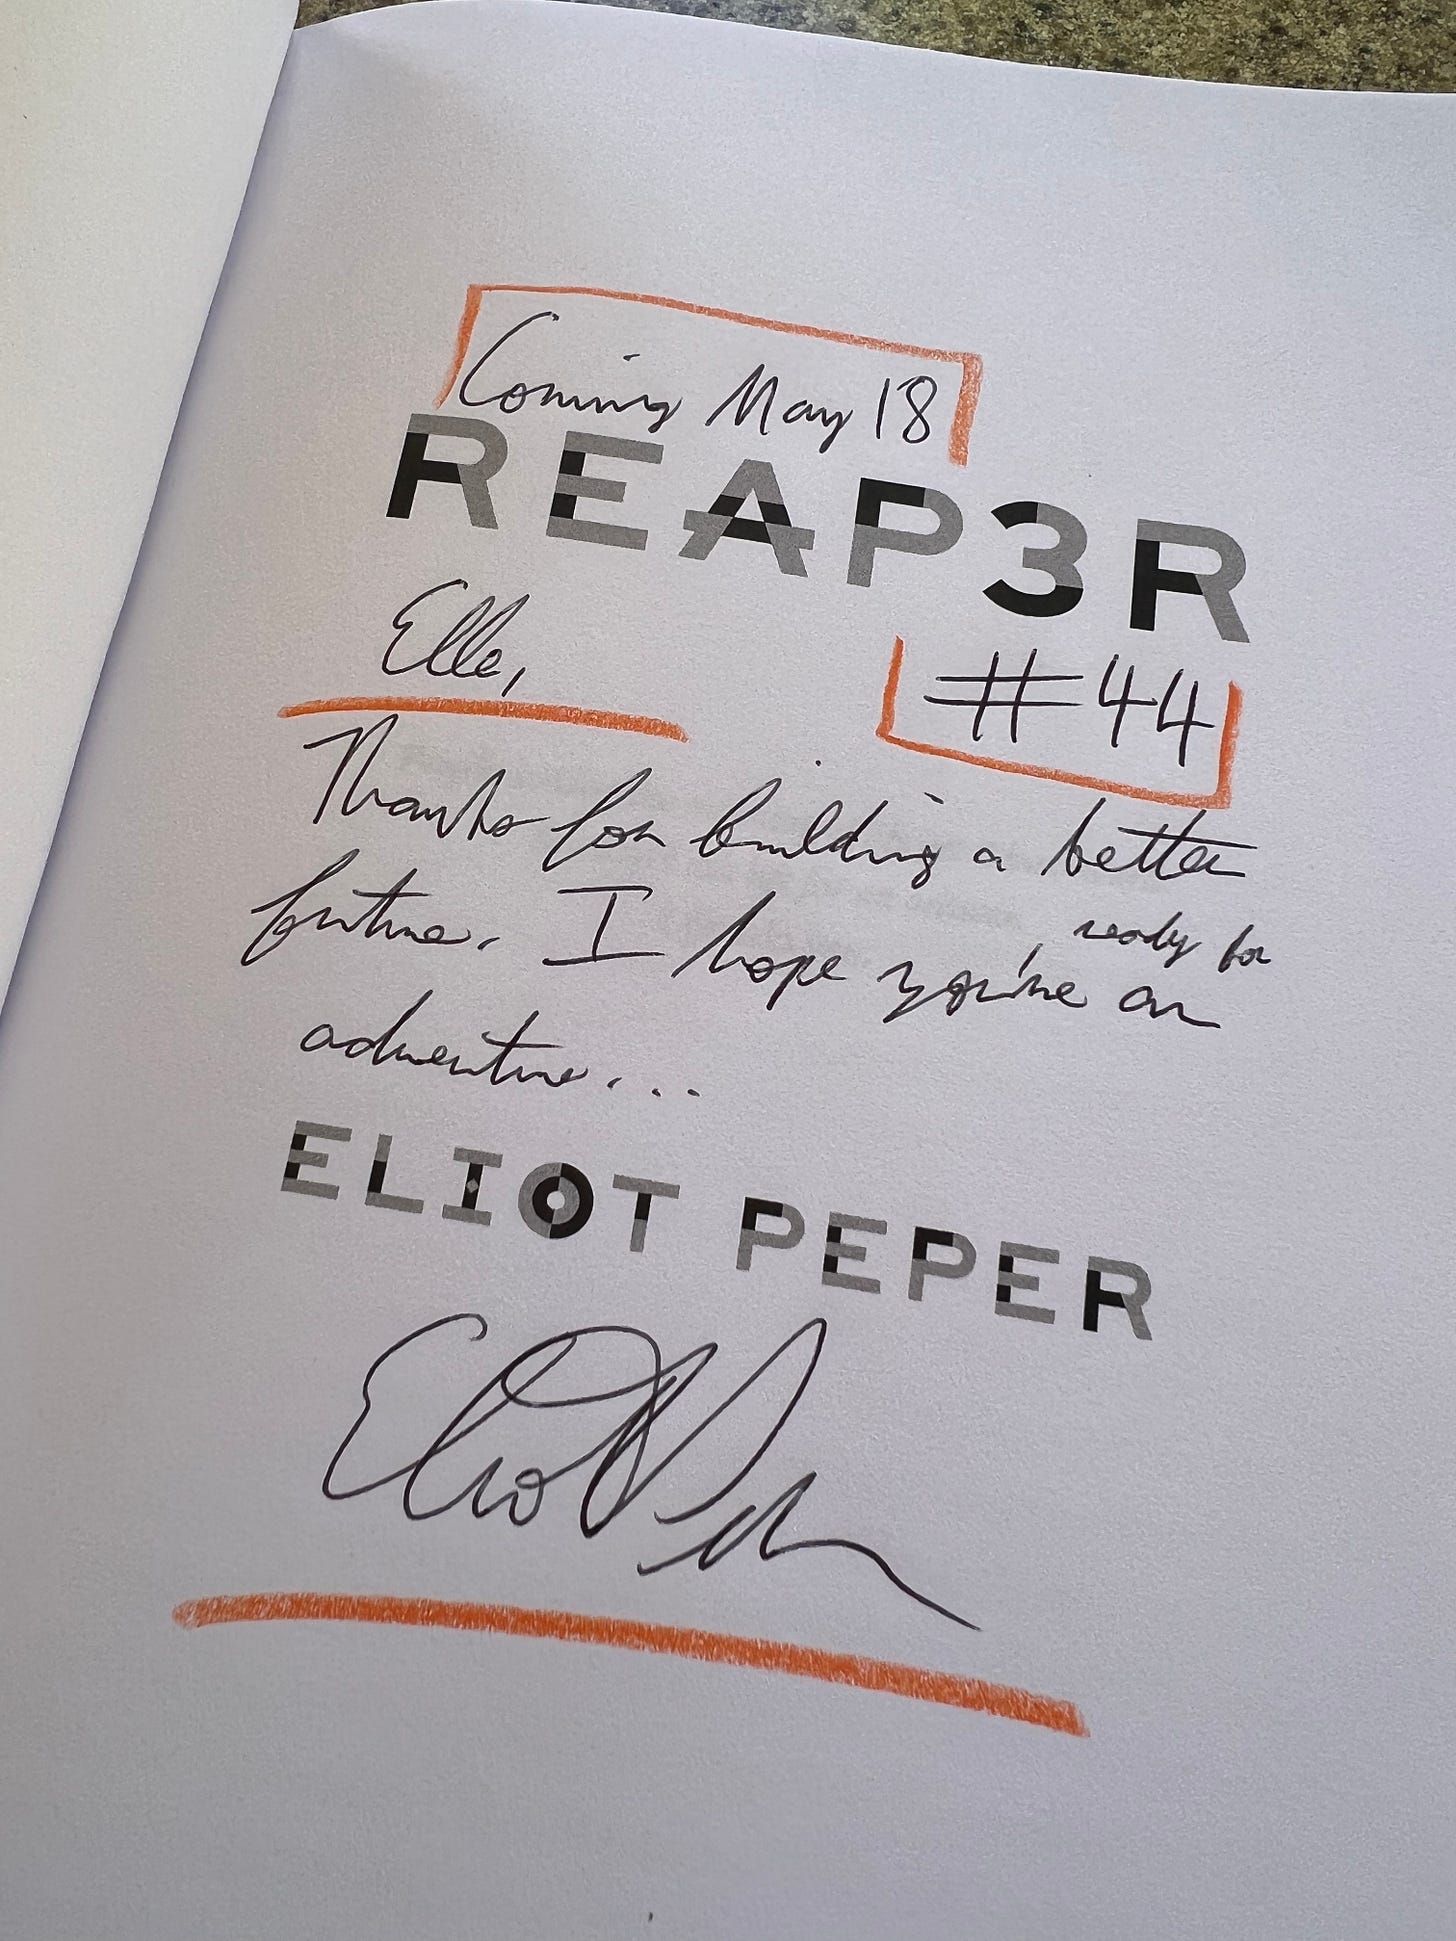 Coming May 18
REAP3R
Elle,
#44
Thanks for building a better
future. I hope you're ready for an
adventure...
ELIOT PEPER
Eliot Peper